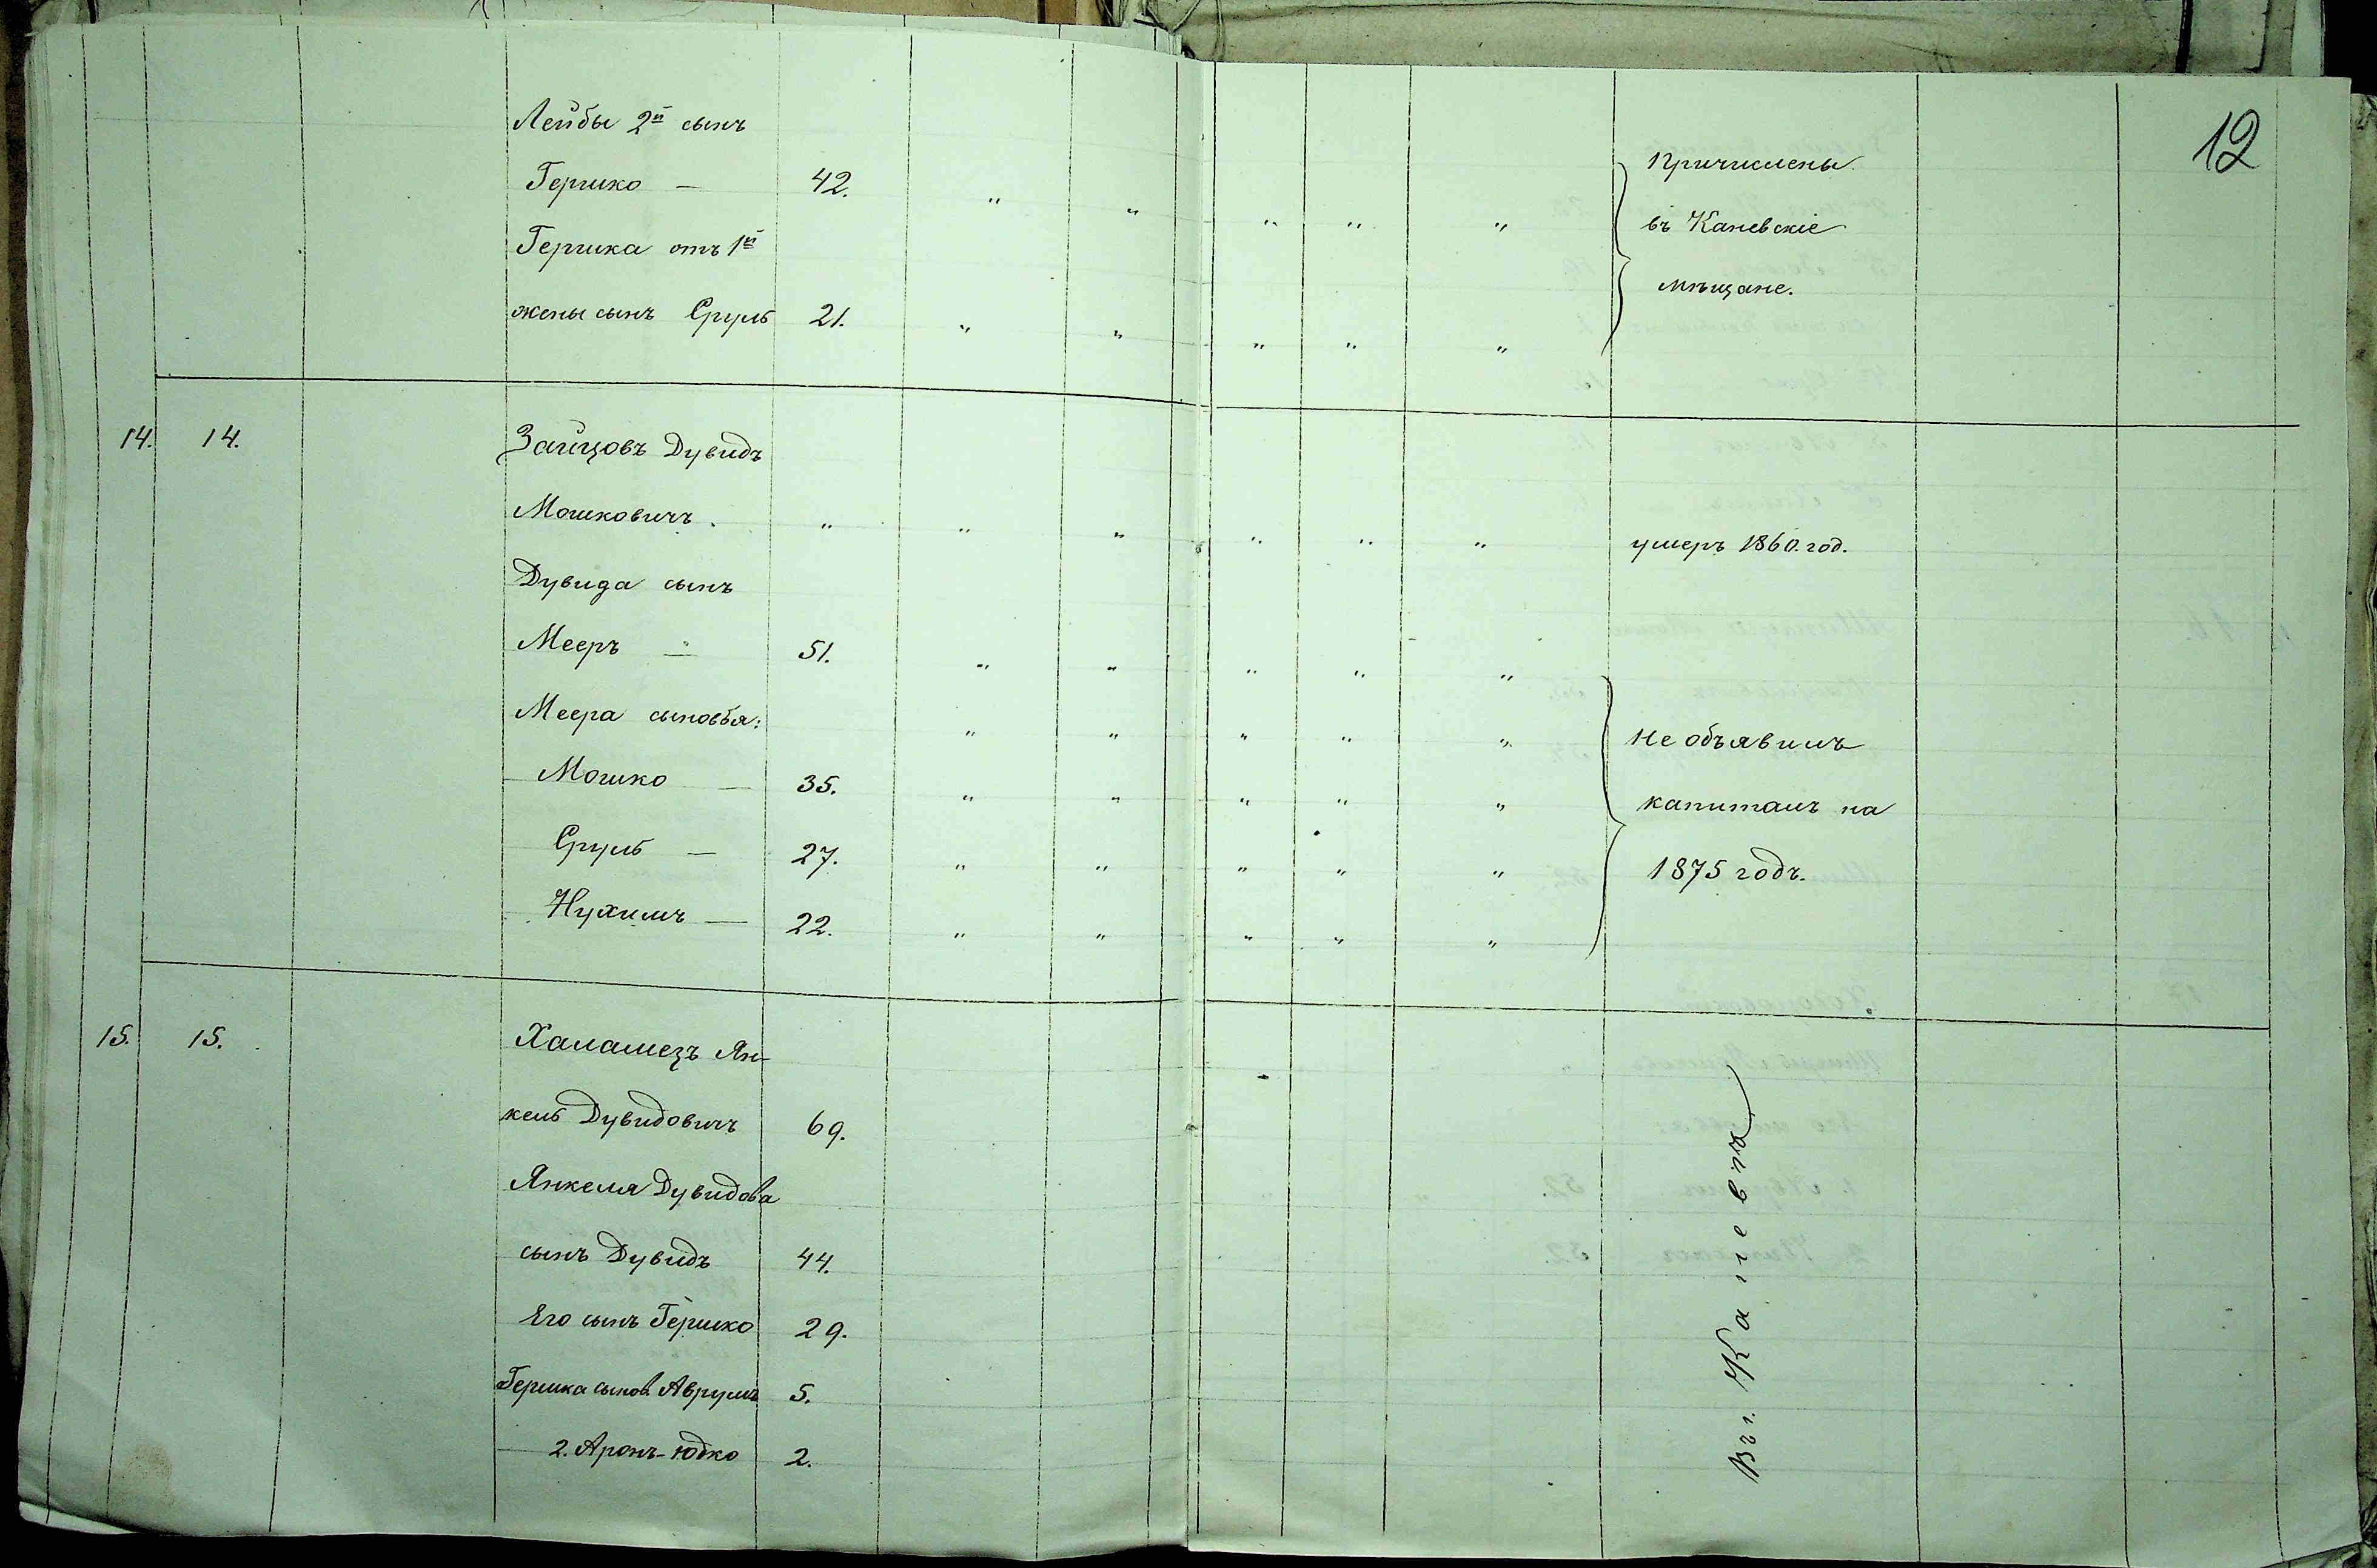 12
Лейбы 2й сынъ
Гершко — 42. " " " " " Причислены
Гершка отъ 1й въ Каневскіе
жены сынъ Сруль 21. " " " " " мѣщане.
14. 14. Зайцовъ Дувидъ
Мошковичъ. " " " " " " умеръ 1860. год.
Дувида сынъ
Мееръ — 51. " " " " "
Меера сыновья: " " " " " Не объявилъ
Мошко — 35. " " " " " капиталъ на
Сруль — 27. " " " " " 1875 годъ.
Нухимъ — 22. " " " " "
15. 15. Халамезъ Ян-
кель Дувидовичъ 69.
Янкеля Дувидова
сынъ Дувидъ 44.
Его сынъ Гершко 29.
Гершка сынов. Аврумъ 5.
2. Аронъ-Юдко 2.
Въ г. Каневѣ